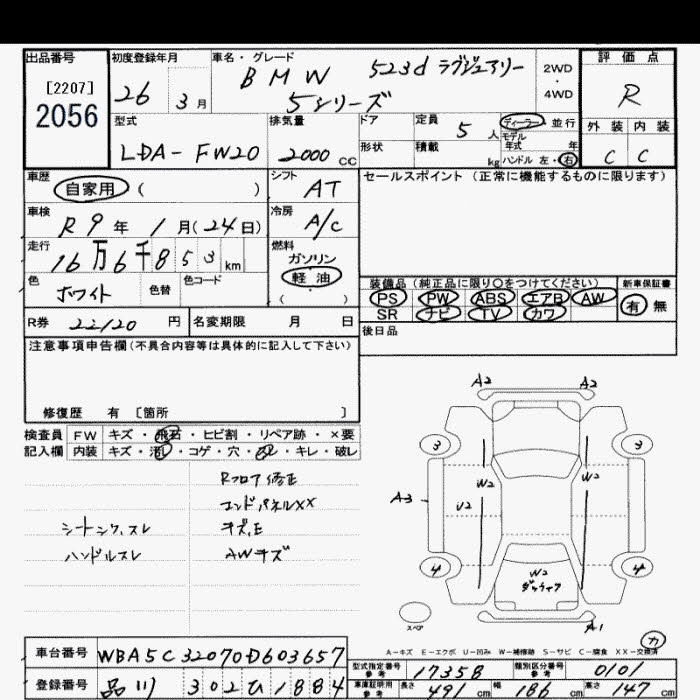 出品番号 初度登録年月 車名・グレード 評価点
[2207]
2056
26 3月 BMW 523d ラグジュアリー
5シリーズ
2WD
・
4WD
R
型式 排気量 ドア 定員 5人 ディーラー 並行
外装 内装
モデル年式 年
LDA-FW20 2000 CC 形状 積載 kg ハンドル 左・右
C C
車歴 シフト セールスポイント (正常に機能するものに限ります)
自家用 ( ) AT
車検 冷房
R9年 1月(24日) A/C
走行 燃料
16万6千853km ガソリン
軽油
色 色替 色コード ( )
ホワイト
装備品(純正品に限り○をつけてください) 新車保証書
PS PW ABS エアB AW 有 無
SR ナビ TV カワ
R券 22120円 名変期限 月 日 後日品
注意事項申告欄(不具合内容等は具体的に記入して下さい)
修復歴 有 [箇所 ]
検査員 FW キズ・飛石・ヒビ割・リペア跡・×要
記入欄 内装 キズ・汚レ・コゲ・穴・スレ・キレ・破レ
Rフロア修正
コンドパネルXX
シートシワ,スレ キズ,E
ハンドルスレ AWキズ
A2 A2
3 3
W2 W2
A3 U2
4 4
W2
A1
スペア
カ
A-キズ E-エクボ U-凹み W-補修跡 S-サビ C-腐食 XX-交換済
車台番号 WBA5C32070D603657
型式指定番号 参考 17358 類別区分番号 参考 0101
登録番号 品川 302ひ1884
車庫証明用 参考 長さ 491cm 幅 186cm 高さ 147cm